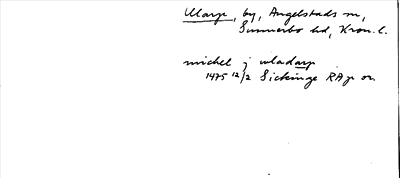 Ularp, by, Angelstads sn,
Sunnerbo hd, Kron. l.
michel j wladarp
1475 12/2 Sickinge RAp or.